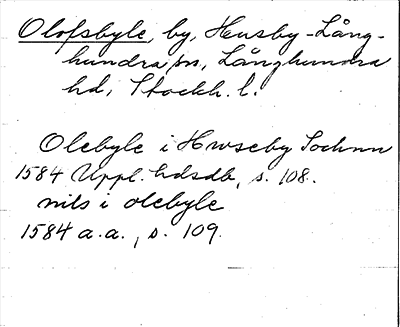 Olofsbyle, by, Husby-Lång-
hundra sn, Långhundra
hd, Stockh. l.
Olebyle i Hwseby Sochnn
1584 Uppl. hdsdb, s. 108.
nils i olebyle
1584 a.a., s. 109.